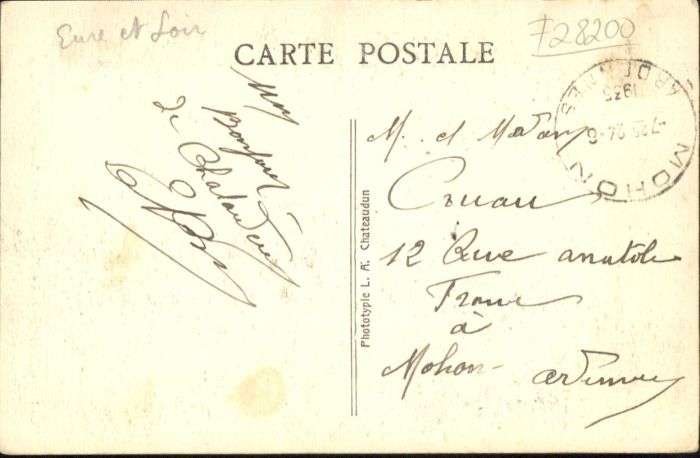 Eure et Loir
F28200
CARTE POSTALE
Un
Bonjour
de Chateaudun
M. et Madame
Cruau
12 Rue anatole
France
à
Mohon -
ardennes
Phototypie L. A. Chateaudun
MOHON
ARDENNES
1925